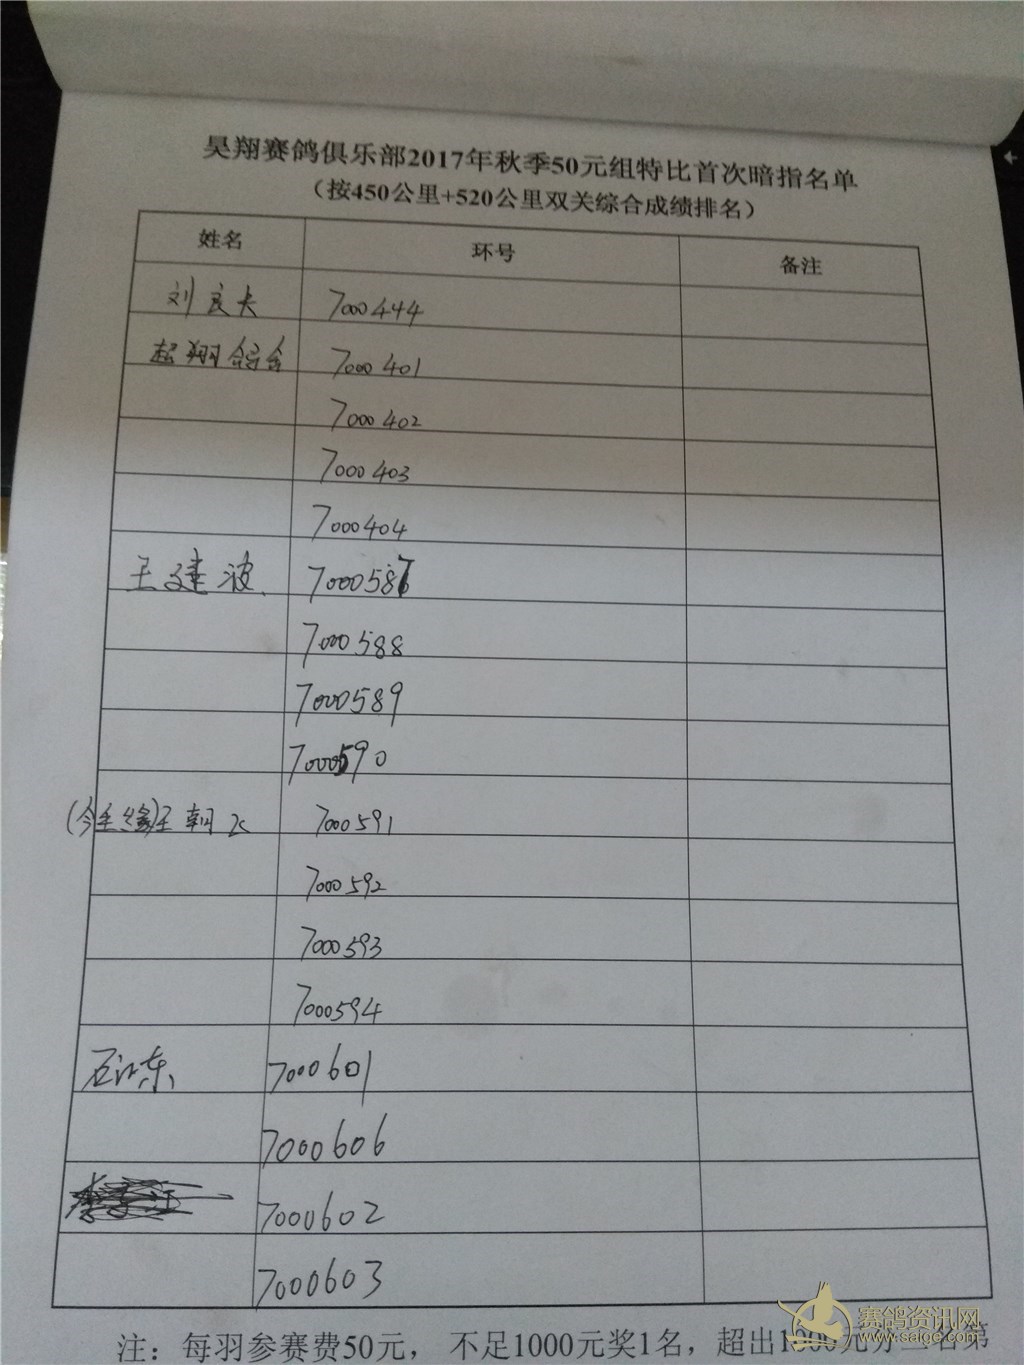 昊翔赛鸽俱乐部2017年秋季50元组特比首次暗指名单
（按450公里+520公里双关综合成绩排名）
姓名 环号 备注
刘良夫 7000444
超翔鸽舍 7000401
7000402
7000403
7000404
王建波 7000587
7000588
7000589
7000590
(今生缘)王朝 7000591
7000592
7000593
7000594
石江东 7000601
7000606
7000602
7000603
注：每羽参赛费50元， 不足1000元奖1名，超出1000元分二名第
赛鸽资讯网
www.saige.com